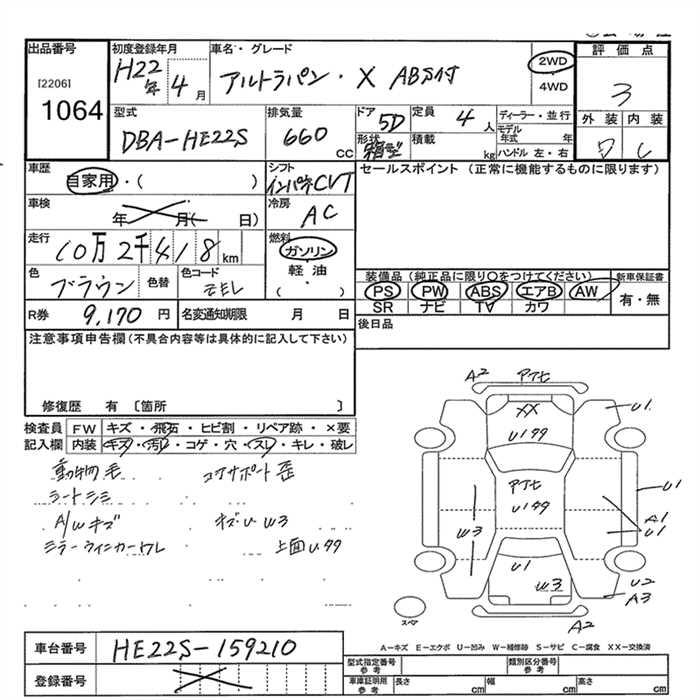 出品番号
[2206]
1064
初度登録年月
H22年 4月
車名・グレード
アルトラパン・X ABS付
2WD
・
4WD
評価点
3
外装 内装
型式
DBA-HE22S
排気量
660 CC
ドア
5D
形状
箱型
定員
4人
積載
kg
ディーラー・並行
モデル年式 年
ハンドル 左・右
車歴
自家用・( )
シフト
インパネCVT
車検
年 月( 日)
冷房
AC
走行
10万2千418km
燃料
ガソリン
軽油
・
( )
色
ブラウン
色替
色コード
ZEL
R券 9,170 円
名変通知期限 月 日
セールスポイント (正常に機能するものに限ります)
装備品(純正品に限り○をつけてください)
PS PW ABS エアB AW
SR ナビ TV カワ
新車保証書
有・無
後日品
注意事項申告欄(不具合内容等は具体的に記入して下さい)
修復歴 有 〔箇所 〕
検査員記入欄
FW キズ・飛石・ヒビ割・リペア跡・×要
内装 キズ・汚レ・コゲ・穴・スレ・キレ・破レ
動物毛 コアサポート歪
シートシミ
A/Wキズ キズU W3
ミラーウィンカーワレ 上面Uタタ
A2 アトセ
XX
Uタタ
U1
アトセ
Uタタ
U1
W3
A1
U1
U1
W3
U2
A3
A2
スペア
A-キズ E-エクボ U-凹み W-補修跡 S-サビ C-腐食 XX-交換済
車台番号 HE22S-159210
登録番号
型式指定番号 参考
類別区分番号 参考
車庫証明用 参考
長さ cm
幅 cm
高さ cm